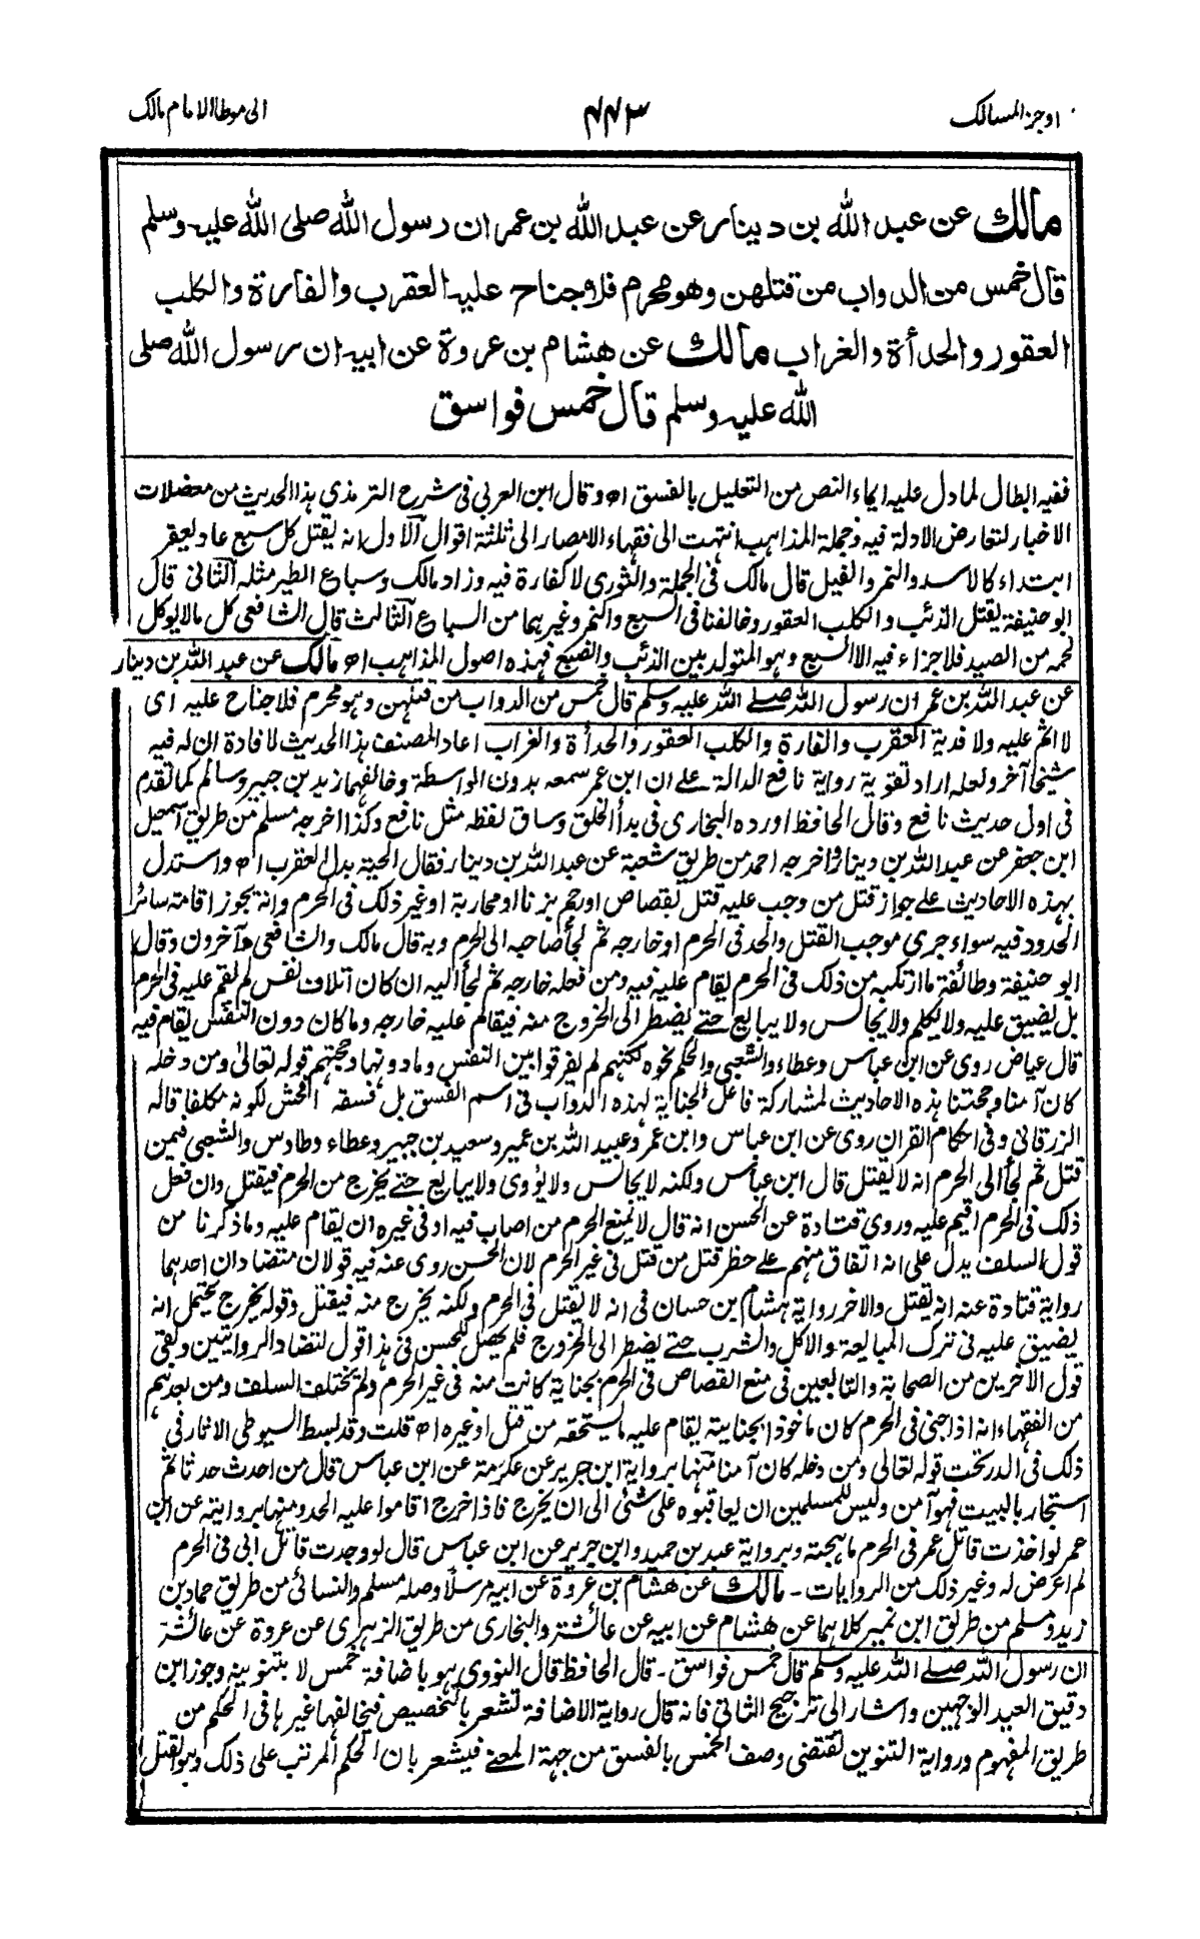 اوجز المسالك
٦٦٣
الى موطا الامام مالك
مالك عن عبد الله بن دينار عن عبد الله بن عمر ان رسول الله صلى الله عليه وسلم
قال خمس من الدواب من قتلهن وهو محرم فلا جناح عليه العقرب والفارة والكلب
العقور والحدأة والغراب مالك عن هشام بن عروة عن ابيه ان رسول الله صلى
الله عليه وسلم قال خمس فواسق
ففيه ابطال لما دل عليه ايماء النص من التعليل بالفسق اه وقال ابن العربى فى شرح الترمذى هذا الحديث من معضلات
الاخبار لتعارض الادلة فيه وجملة المذاهب انتهت الى فقهاء الامصار الى ثلثة اقوال الاول انه يقتل كل سبع عاد يعقر
ابتداء كالاسد والنمر والفيل قال مالك فى الجملة والثورى لا كفارة فيه وزاد مالك وسباع الطير مثله الثانى قال
ابو حنيفة يقتل الذئب والكلب العقور وخالفنا فى السبع والنمر وغيرهما من السباع الثالث قال الشافعى كل مالا يوكل
لحمه من الصيد فلا جزاء فيه الا السبع وهو المتولد بين الذئب والضبع فهذه اصول المذاهب اه مالك عن عبد الله بن دينار
عن عبد الله بن عمر ان رسول الله صلى الله عليه وسلم قال خمس من الدواب من قتلهن وهو محرم فلا جناح عليه اى
لا اثم عليه ولا فدية العقرب والفارة والكلب العقور والحدأة والغراب اعاد المصنف هذا الحديث لافادة ان له فيه
شيخا آخر ولعله اراد تقوية رواية نافع الدالة على ان ابن عمر سمعه بدون الواسطة وخالفهما زيد بن جبير وسالم كما تقدم
فى اول حديث نافع وقال الحافظ اورده البخارى فى بدأ الخلق وساق لفظه مثل نافع وكذا اخرجه مسلم من طريق اسمعيل
ابن جعفر عن عبد الله بن دينار واخرجه احمد من طريق شعبة عن عبد الله بن دينار فقال الحية بدل العقرب اه واستدل
بهذه الاحاديث على جواز قتل من وجب عليه قتل بقصاص او رجم بزنا او محاربة او غير ذلك فى الحرم وانه يجوز اقامته سائر
الحدود فيه سواء جرى موجب القتل والحد فى الحرم او خارجه ثم لجأ صاحبه الى الحرم وبه قال مالك والشافعى وآخرون وقال
ابو حنيفة وطائفة ما ارتكبه من ذلك فى الحرم يقام عليه فيه ومن فعله خارجه ثم لجأ اليه ان كان اتلاف نفس لم يقم عليه فى الحرم
بل يضيق عليه ولا يكلم ولا يجالس ولا يبايع حتى يضطر الى الخروج منه فيقام عليه خارجه وما كان دون النفس يقام فيه
قال عياض روى عن ابن عباس وعطاء والشعبى والحكم نحوه لكنهم لم يفرقوا بين النفس وما دونها وحجتهم قوله تعالى ومن دخله
كان آمنا وحجتنا هذه الاحاديث لمشاركة فاعل الجناية لهذه الدواب فى اسم الفسق بل فسقه افحش لكونه مكلفا قاله
الزرقانى وفى احكام القران روى عن ابن عباس وابن عمر وعبيد الله بن عمير وسعيد بن جبير وعطاء وطاوس والشعبى فيمن
قتل ثم لجأ الى الحرم انه لا يقتل قال ابن عباس ولكنه لا يجالس ولا يؤوى ولا يبايع حتى يخرج من الحرم فيقتل وان فعل
ذلك فى الحرم اقيم عليه وروى قتادة عن الحسن انه قال لا يمنع الحرم من اصاب فيه او فى غيره ان يقام عليه وما ذكرنا من
قول السلف يدل على انه اتفاق منهم على حظر قتل من قتل فى غير الحرم لان الحسن روى عنه فيه قولان متضادان احدهما
رواية قتادة عنه انه يقتل والاخر رواية هشام بن حسان فى انه لا يقتل فى الحرم ولكنه يخرج منه فيقتل وقوله يخرج يحتمل انه
يضيق عليه فى ترك المبايعة والاكل والشرب حتى يضطر الى الخروج فلم يحصل للحسن فى هذا قول لتضاد الروايتين وبقى
قول الآخرين من الصحابة والتابعين فى منع القصاص فى الحرم بجناية كانت منه فى غير الحرم ولم يختلف السلف ومن بعدهم
من الفقهاء انه اذا جنى فى الحرم كان ماخوذا بجنايته يقام عليه ما يستحقه من قتل او غيره اه قلت وقد بسط السيوطى الاثار فى
ذلك فى الدر تحت قوله تعالى ومن دخله كان آمنا منها برواية ابن جرير عن عكرمة عن ابن عباس قال من احدث حدثا ثم
استجار بالبيت فهو آمن وليس للمسلمين ان يعاقبوه على شئ الى ان يخرج فاذا خرج اقاموا عليه الحد ومنها بروايته عن ابن
عمر لو اخذت قاتل عمر فى الحرم ما هجته وبرواية عبد بن حميد وابن جرير عن ابن عباس قال لو وجدت قاتل ابى فى الحرم
لم اعرض له وغير ذلك من الروايات - مالك عن هشام بن عروة عن ابيه مرسلا وصله مسلم والنسائى من طريق حماد بن
زيد ومسلم من طريق ابن نمير كلاهما عن هشام عن ابيه عن عائشة والبخارى من طريق الزهرى عن عروة عن عائشة
ان رسول الله صلى الله عليه وسلم قال خمس فواسق - قال الحافظ قال النووى هو باضافة خمس لا بتنوينه وجوز ابن
دقيق العيد الوجهين واشار الى ترجيح الثانى فانه قال رواية الاضافة تشعر بالتخصيص فيخالفها غيرها فى الحكم من
طريق المفهوم ورواية التنوين تقتضى وصف الخمس بالفسق من جهة المعنى فيشعر بان الحكم المرتب على ذلك وهو القتل